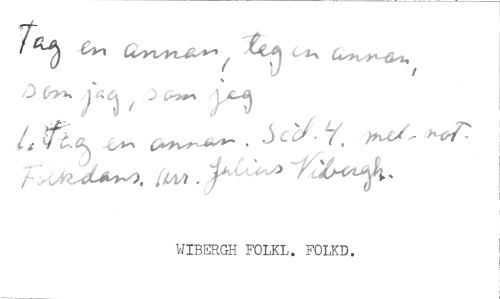 Tag en annan, tag en annan,
som jag, som jag
1. Tag en annan. Sid. 4. mel-not.
Folkdans. Arr. Julius Vibergh.
WIBERGH FOLKL. FOLKD.